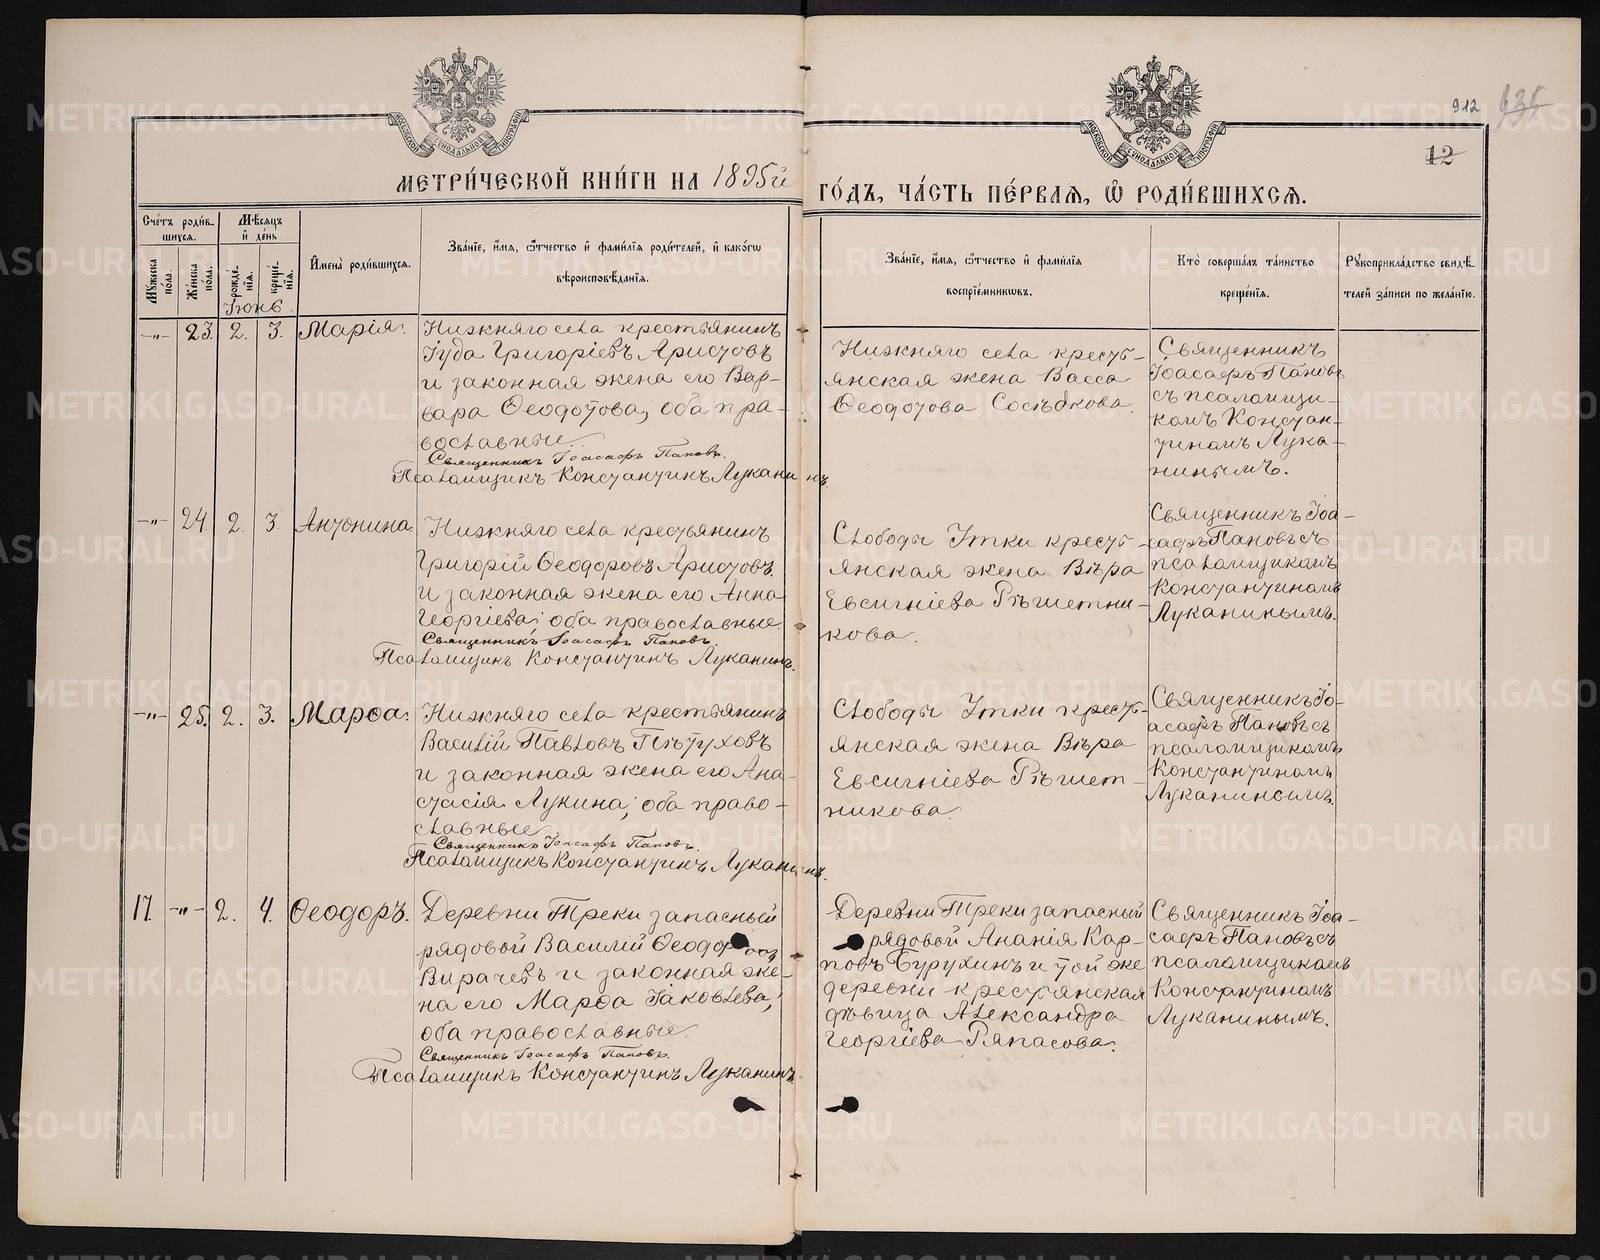 912 635
12
МЕТРИ́ЧЕСКОЙ КНИ́ГИ НА 1895й ГО́ДЪ, ЧА́СТЬ ПЕ́РВАѦ, Ѽ РОДИ́ВШИХСѦ.
Сче́тъ роди́в-
шихсѧ.
Мѣ́сѧцъ
и҆ де́нь
Мꙋ́жеска по́ла.
Же́нска по́ла.
рожде́-
нїѧ.
креще́-
нїѧ.
Іюнь.
И҆мена̀ роди́вшихсѧ.
Зва́нїе, и҆́мѧ, ѻ҆́тчество и҆ фами́лїѧ роди́телей, и҆ како́гѡ
вѣроисповѣ́данїѧ.
Зва́нїе, и҆́мѧ, ѻ҆́тчество и҆ фами́лїѧ
воспрїе́мникѡвъ.
Кто̀ соверша́лъ та́инство
креще́нїѧ.
Рꙋкоприкла́дство свидѣ́-
телей за́писи по жела́нїю.
—"— 23. 2. 3. Марія.
Нижняго села крестьянинъ
Іуда Григоріевъ Аристовъ
и законная жена его Вар-
вара Ѳеодотова, оба пра-
вославные.
Священникъ Іоасафъ Пановъ.
Псаломщикъ Константинъ Луканинъ.
Нижняго села кресть-
янская жена Васса
Ѳеодотова Сосѣдкова.
Священникъ
Іоасафъ Пановъ
съ псаломщи-
комъ Констан-
тиномъ Лука-
нинымъ.
—"— 24. 2. 3. Антонина.
Нижняго села крестьянинъ
Григорій Ѳеодоровъ Аристовъ
и законная жена его Анна
Георгіева; оба православные.
Священникъ Іоасафъ Пановъ.
Псаломщикъ Константинъ Луканинъ.
Слободы Утки кресть-
янская жена Вѣра
Евсигніева Рѣшетни-
кова.
Священникъ Іоа-
сафъ Пановъ съ
псаломщикомъ
Константиномъ
Луканинымъ.
—"— 25. 2. 3. Марѳа.
Нижняго села крестьянинъ
Василій Павловъ Пѣтуховъ
и законная жена его Ана-
стасія Лукина; оба право-
славные
Священникъ Іоасафъ Пановъ.
Псаломщикъ Константинъ Луканинъ.
Слободы Утки кресть-
янская жена Вѣра
Евсигніева Рѣшет-
никова.
Священникъ Іо-
асафъ Пановъ съ
псаломщикомъ
Константиномъ
Луканинымъ.
17. —"— 2. 4. Ѳеодоръ.
Деревни Треки запасный
рядовой Василій Ѳеодоровъ
Вирачевъ и законная же-
на его Марѳа Іаковлева,
оба православные.
Священникъ Іоасафъ Пановъ.
Псаломщикъ Константинъ Луканинъ.
Деревни Треки запасный
рядовой Ананія Кар-
повъ Бурухинъ и той же
деревни крестьянская
дѣвица Александра
Георгіева Ряпасова.
Священникъ Іоа-
сафъ Пановъ съ
псаломщикомъ
Константиномъ
Луканинымъ.